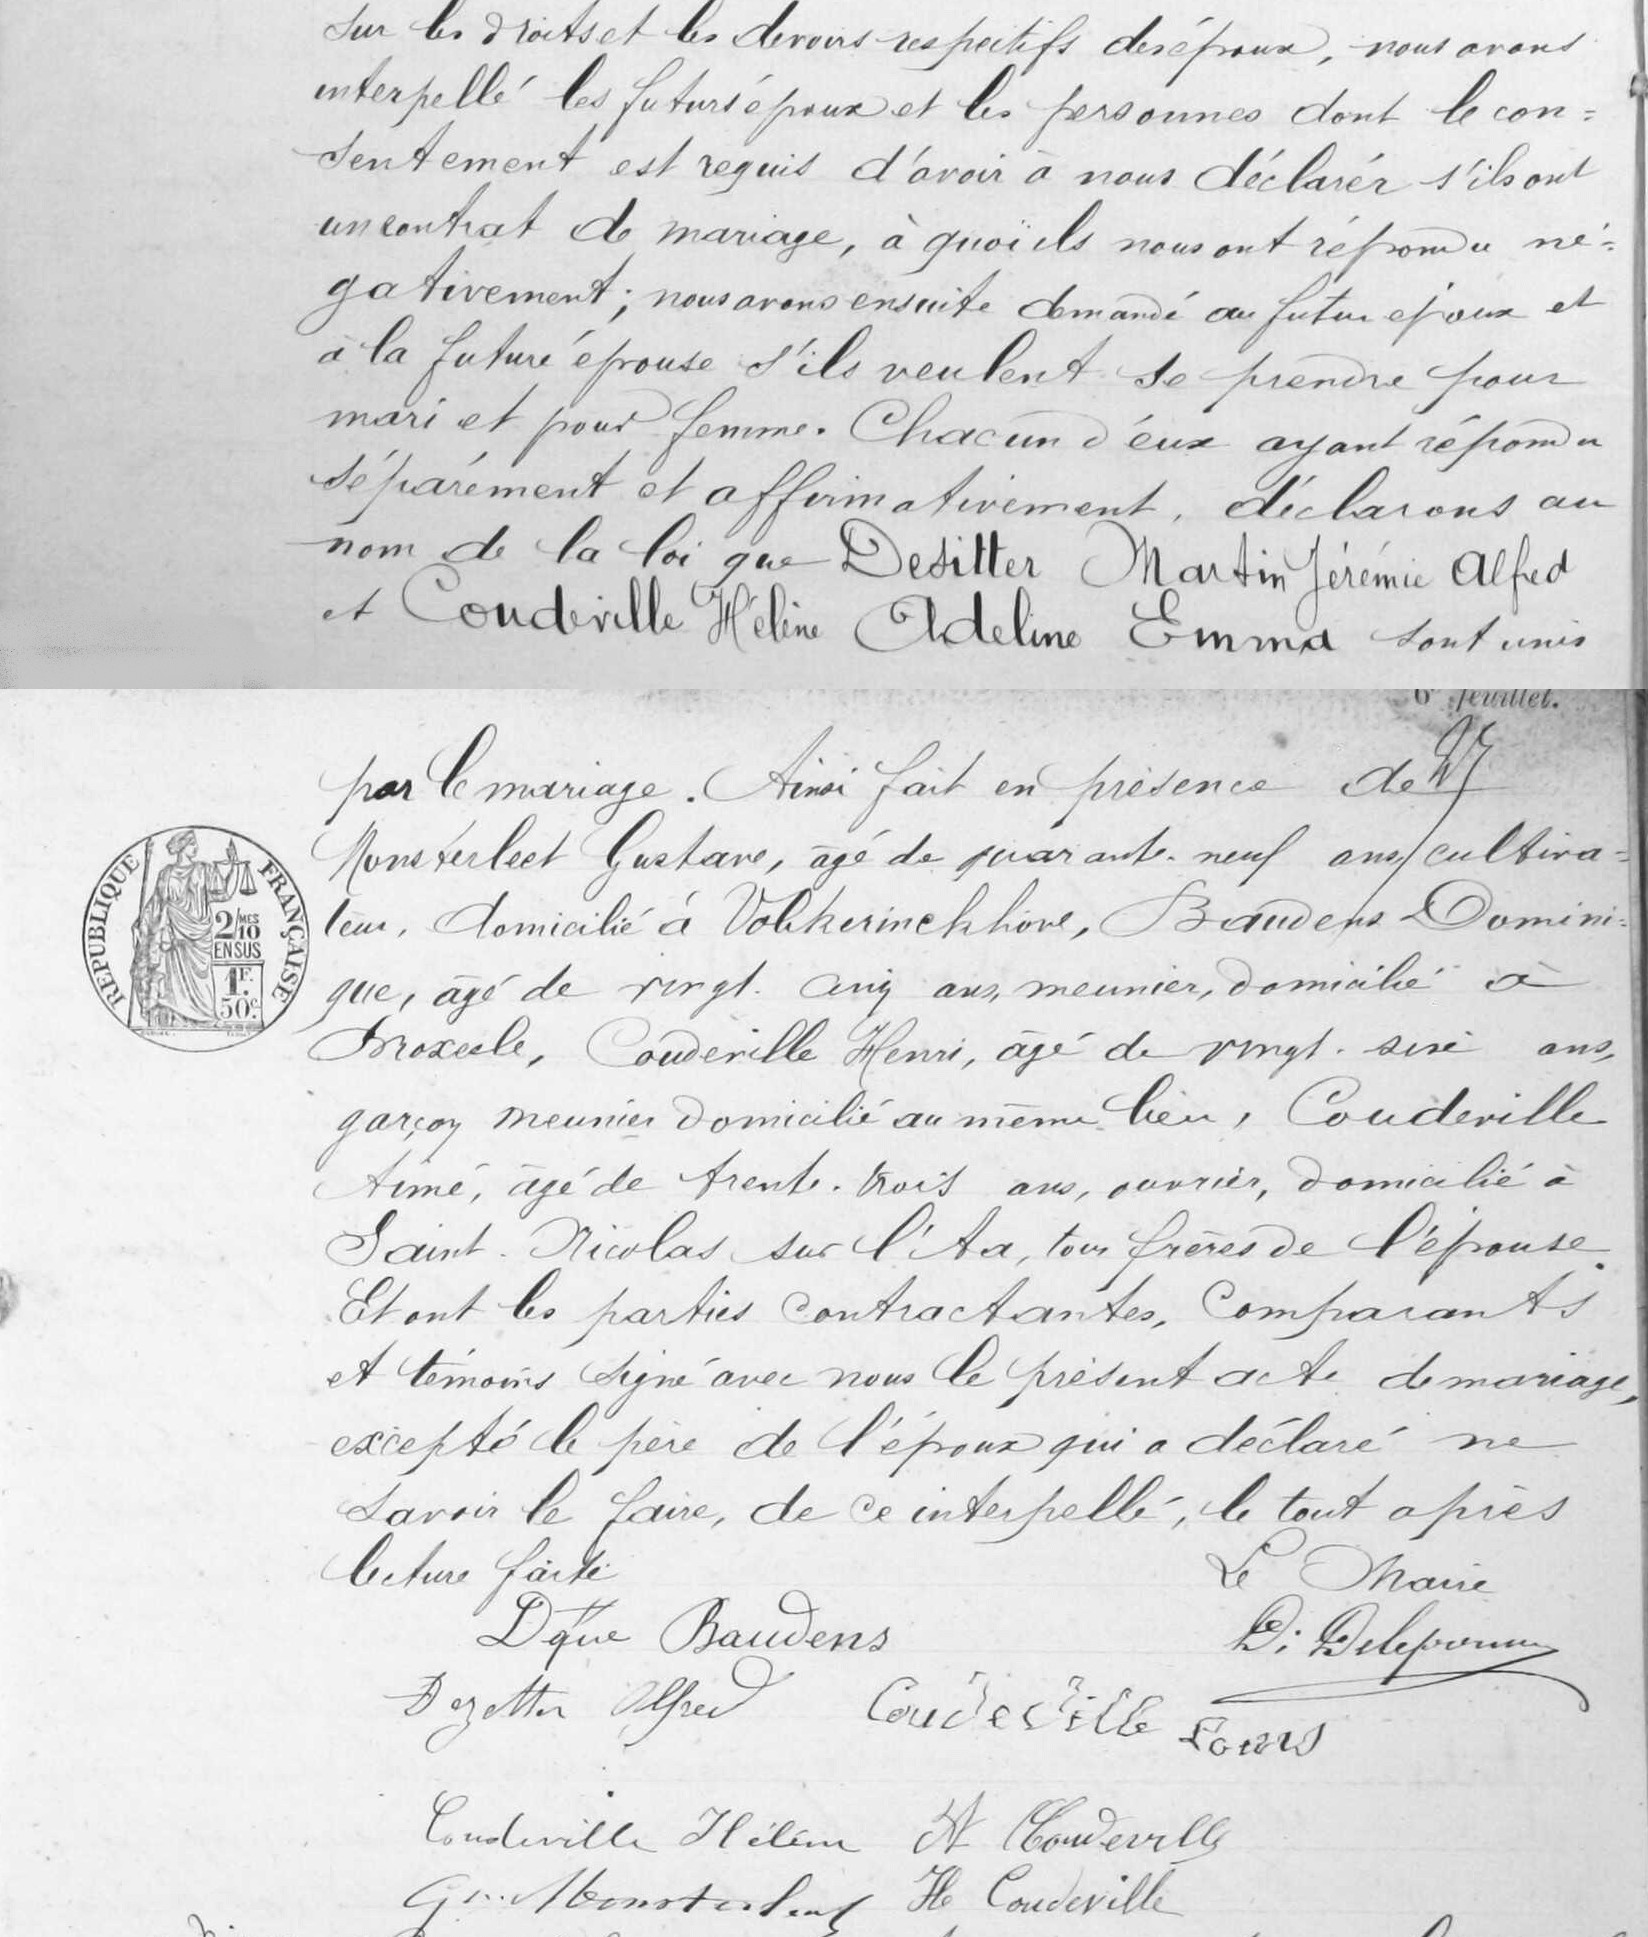 sur les droits et les devoirs respectifs des époux, nous avons
interpellé les futurs époux et les personnes dont le con=
sentement est requis d'avoir à nous déclarer s'ils ont
un contrat de mariage, à quoi ils nous ont répondu né=
gativement; nous avons ensuite demandé au futur époux et
à la future épouse s'ils veulent se prendre pour
mari et pour femme. Chacun d'eux ayant répondu
séparément et affirmativement, déclarons au
nom de la loi que Desitter Martin Jérémie Alfred
et Coudeville Hélène Adeline Emma sont unis
6e feuillet.
par le mariage. Ainsi fait en présence de
Monsterleet Gustave, âgé de quarante-neuf ans, cultiva=
teur, domicilié à Volkerinckhove, Baudens Domini=
que, âgé de vingt-cinq ans, meunier, domicilié à
Broxeele, Coudeville Henri, âgé de vingt-six ans,
garçon meunier domicilié au même lieu, Coudeville
Aimé, âgé de trente-trois ans, ouvrier, domicilié à
Saint-Nicolas sur l'Aa, tous frères de l'épouse.
Et ont les parties contractantes, comparants
et témoins signé avec nous le présent acte de mariage,
excepté le père de l'époux qui a déclaré ne
savoir le faire, de ce interpellé, le tout après
lecture faite
Le Maire
RÉPUBLIQUE FRANÇAISE
2/10 MES
EN SUS
1F.
50c.
Dque Baudens
D. Delepouve
Dezetter Alfred Coudeville Louis
Coudeville Hélène A Coudeville
G Monsterleet H Coudeville